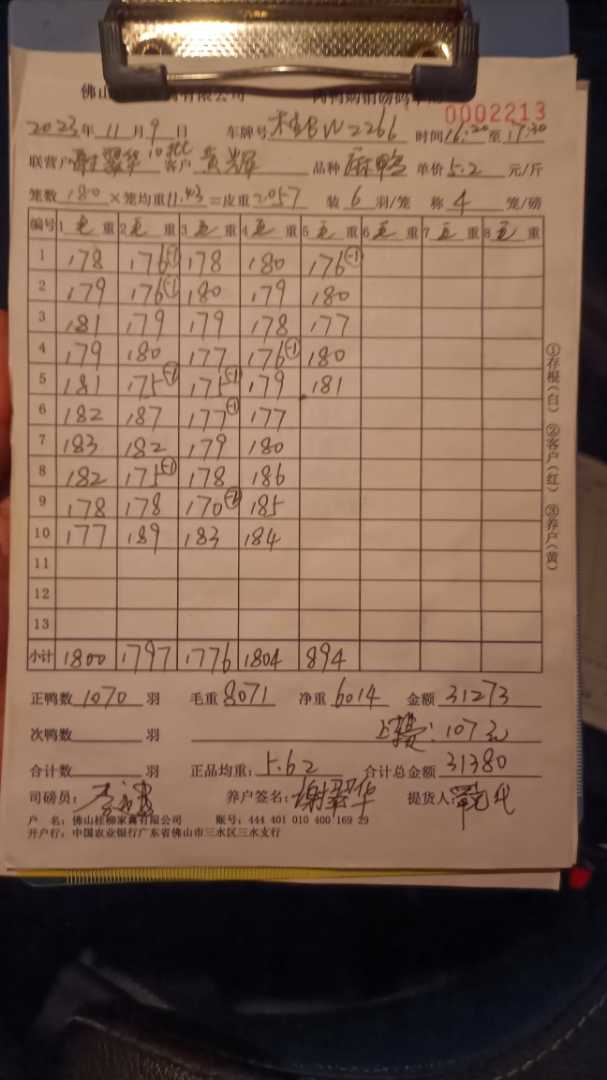 佛山 有限公司
0002213
2023年 11月 9日 车牌号 W2266 时间16:20至17:30
联营户 谢翠华 10批 客户 黄辉 品种 麻鸭 单价 5.2 元/斤
笼数 180 ×笼均重 11.43 =皮重 2057 装 6 羽/笼 称 4 笼/磅
编号 1 毛重 2 毛重 3 毛重 4 毛重 5 毛重 6 毛重 7 毛重 8 毛重
1 178 176(-1) 178 180 176(-1)
2 179 176(-1) 180 179 180
3 181 179 179 178 177
4 179 180 177 176(-1) 180
5 181 175(-1) 175(-1) 179 181
6 182 187 177(-1) 177
7 183 182 179 180
8 182 175(-1) 178 186
9 178 178 170(-2) 185
10 177 189 183 184
11
12
13
小计 1800 1797 1776 1804 894
正鸭数 1070 羽 毛重 8071 净重 6014 金额 31273
次鸭数 羽 107元
合计数 羽 正品均重: 5.62 合计总金额 31380
司磅员: 养户签名: 谢翠华 提货人
户 名: 佛山桂柳家禽有限公司 账号: 444 401 010 400 169 29
开户行: 中国农业银行广东省佛山市三水区三水支行
①存根(白) ②客户(红) ③养户(黄)